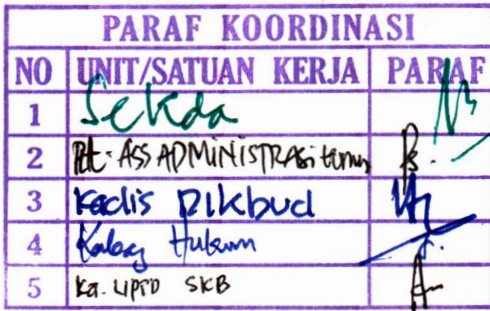 PARAF KOORDINASI
NO UNIT/SATUAN KERJA PARAF
1 Sekda
2 Plt. ASS ADMINISTRASI umum
3 Kadis Dikbud
4 Kabag Hukum
5 Ka. UPTD SKB